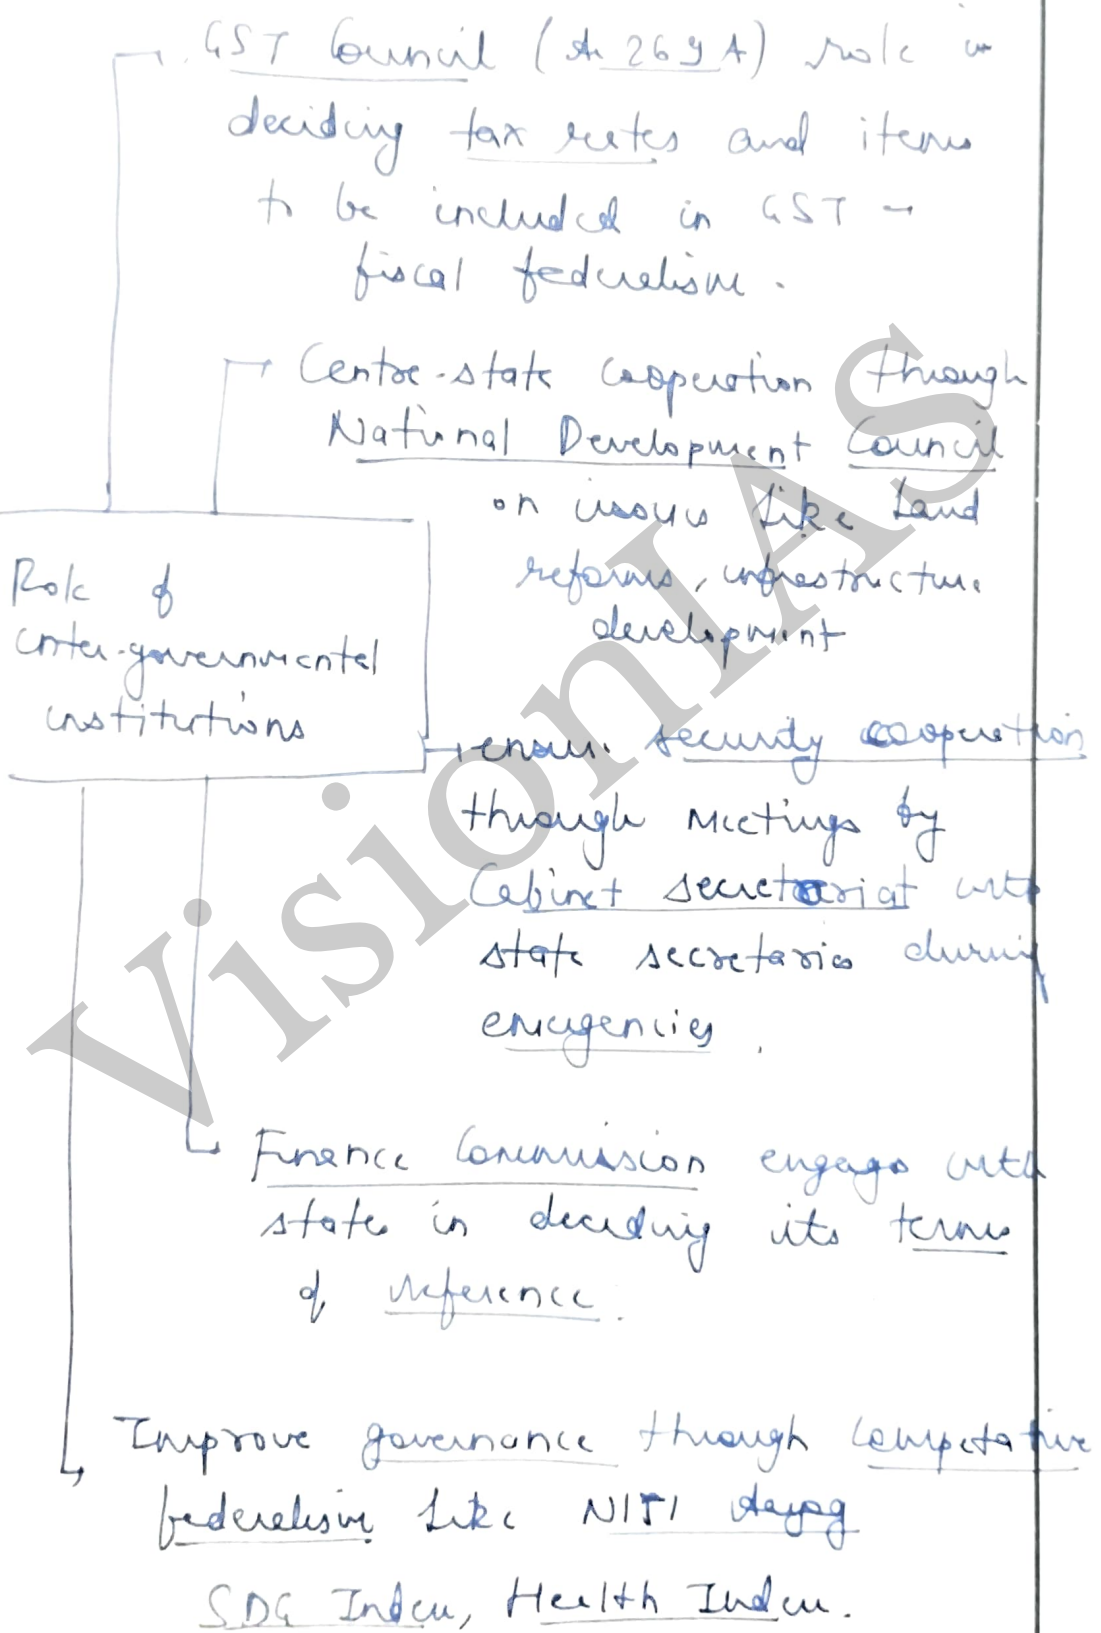 GST Council (Ar 269A) role in
deciding tax rates and items
to be included in GST -
fiscal federalism.
Centre-state cooperation through
National Development Council
on issues like Land
reforms, infrastructure
development
Role of
inter-governmental
institutions
ensure security cooperation
through meetings by
Cabinet secretariat with
state secretaries during
emergencies.
Finance Commission engages with
states in deciding its terms
of reference.
Improve governance through competative
federalism like NITI Aayog
SDG Index, Health Index.
VisionIAS